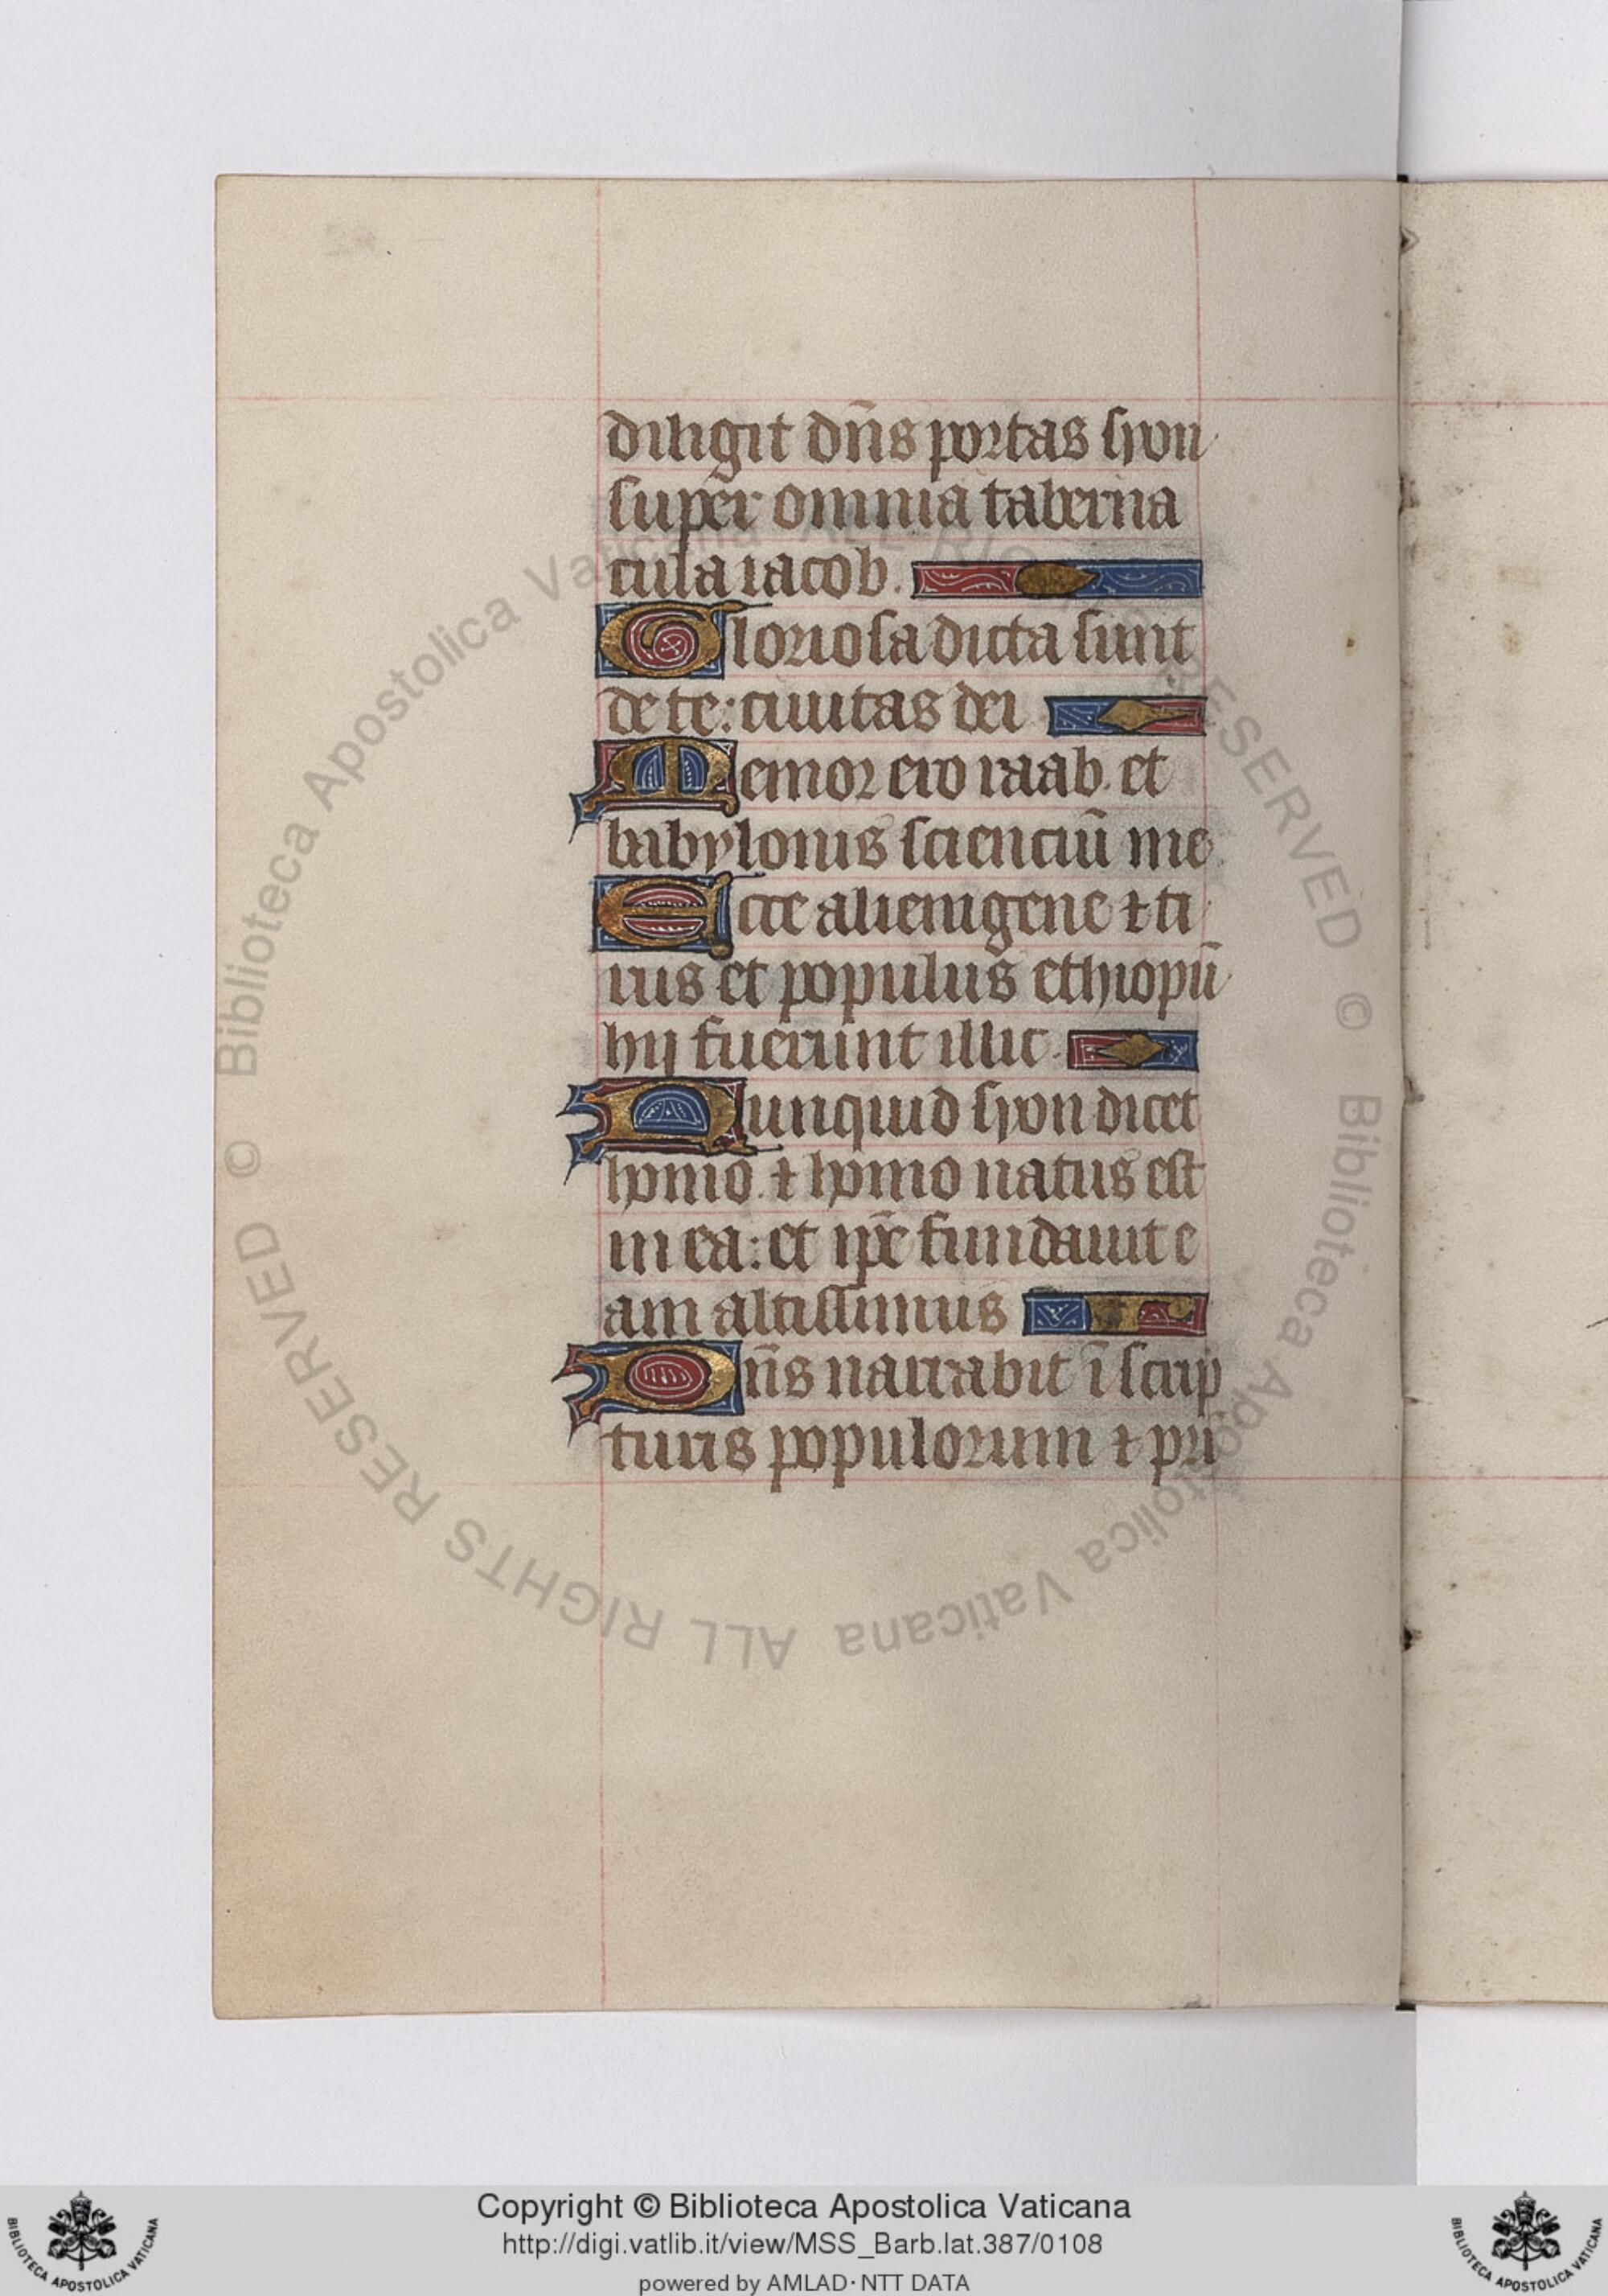 diligit dn̄s portas syon
super omnia taberna
cula iacob.
Gloriosa dicta sunt
de te: ciuitas dei
Memor ero raab. et
babylonis scienciū me
Ecce alienigene ⁊ ti
rus et populus ethiopū
hij fuerunt illic.
Nunquid syon dicet
homo. ⁊ homo natus est
in ea: et ip̄e fundauit e
am altissimus
Dn̄s narrabit ī scrip
turis populorum ⁊ pri
© Biblioteca Apostolica Vaticana ALL RIGHTS RESERVED © Biblioteca Apostolica Vaticana ALL RIGHTS RESERVED
Copyright © Biblioteca Apostolica Vaticana
http://digi.vatlib.it/view/MSS_Barb.lat.387/0108
powered by AMLAD·NTT DATA
BIBLIOTECA APOSTOLICA VATICANA
BIBLIOTECA APOSTOLICA VATICANA